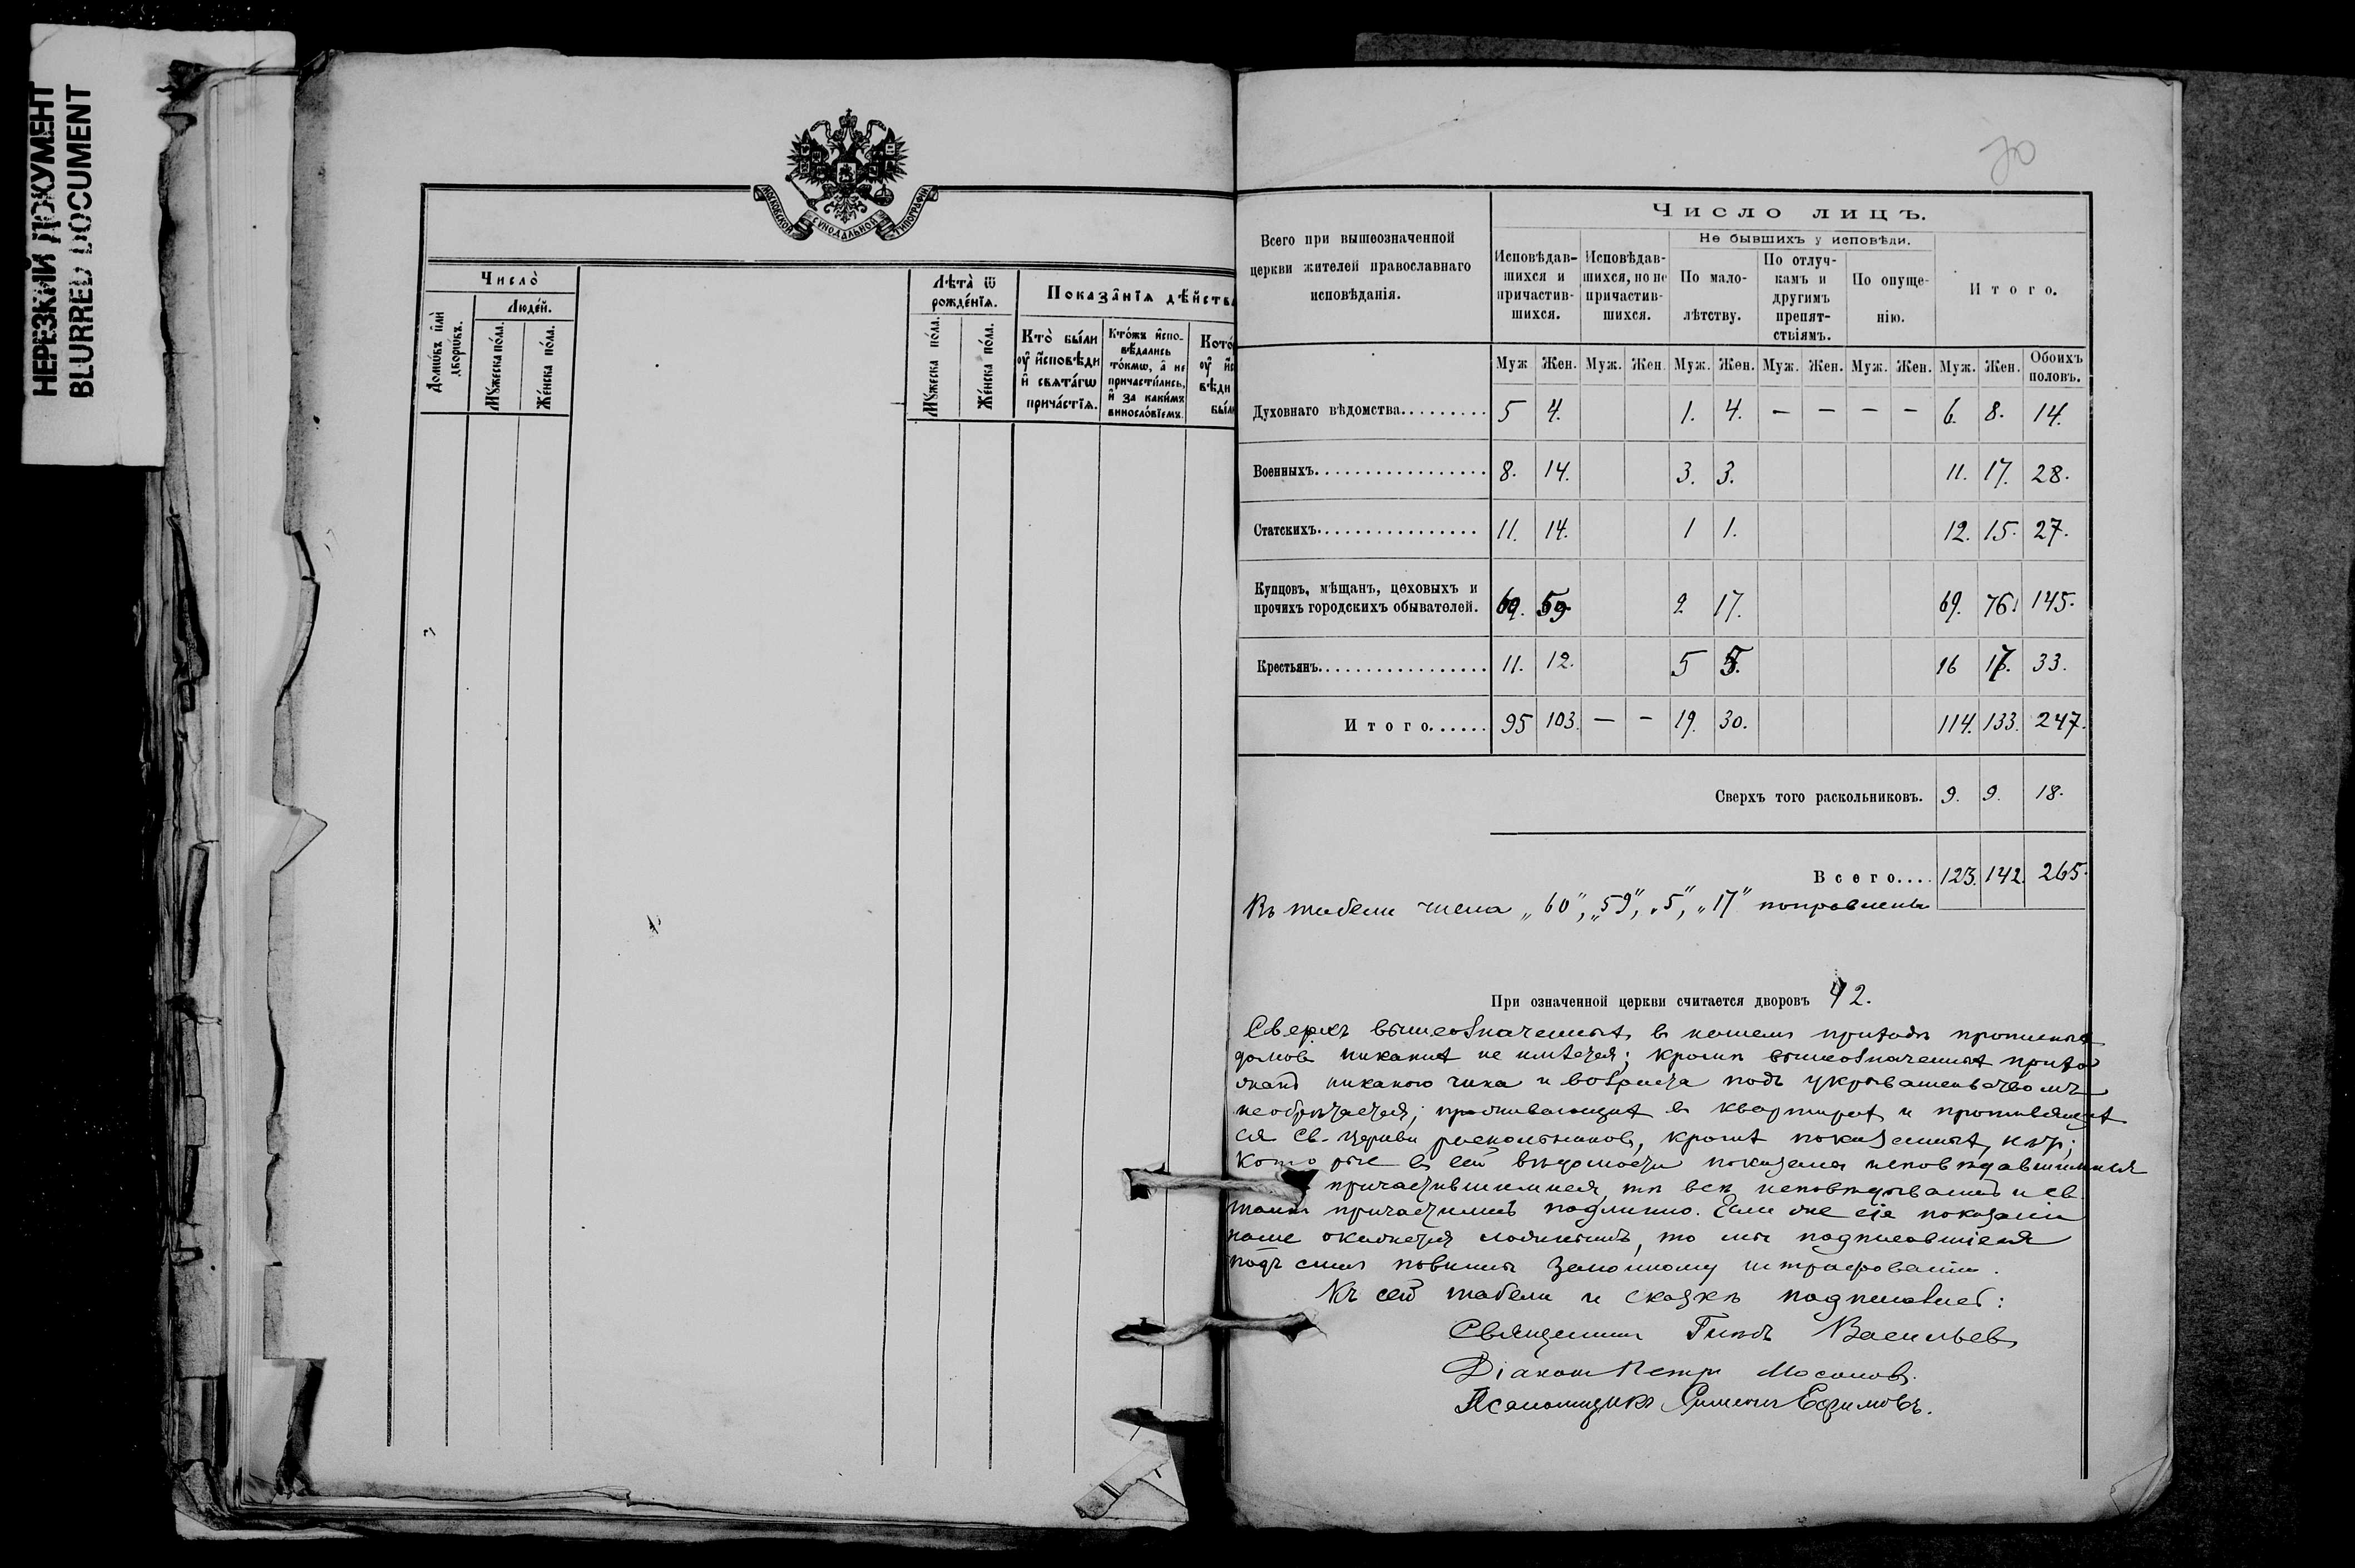 НЕРЕЗКИЙ ДОКУМЕНТ
BLURRED DOCUMENT
МОСКОВСКОЙ СѴНОДАЛЬНОЙ ТИПОГРАФІИ
Число̀
Люде́й.
Домѡ́въ и҆лѝ дворѡ́въ.
Мꙋ́жеска по́ла.
Же́нска по́ла.
Лѣ́та ѿ рожде́нїѧ.
Мꙋ́жеска по́ла.
Же́нска по́ла.
Показа̑нїѧ дѣ́йств
Кто̀ бы́ли оу҆ и҆сповѣ́ди и҆ свѧта́гѡ прича́стїѧ.
Кто́жъ и҆сповѣ́дались то́кмѡ, а҆ не причасти́лись, и҆ за каки́мъ виносло́вїемъ.
70
Всего при вышеозначенной церкви жителей православнаго исповѣданія.
Число лицъ.
Исповѣдавшихся и причастившихся.
Исповѣдавшихся, но не причастившихся.
Не бывшихъ у исповѣди.
По малолѣтству.
По отлучкамъ и другимъ препятствіямъ.
По опущенію.
Итого.
Муж Жен. Муж. Жен. Муж. Жен. Муж. Жен. Муж. Жен. Муж. Жен. Обоихъ половъ.
Духовнаго вѣдомства......... 5 4. 1. 4. — — — — 6. 8. 14.
Военныхъ................. 8. 14. 3. 3. 11. 17. 28.
Статскихъ................ 11. 14. 1 1. 12. 15. 27.
Купцовъ, мѣщанъ, цеховыхъ и
прочихъ городскихъ обывателей. 59. 17. 69. 76. 145.
Крестьянъ................. 11. 12. 5 5. 16 17. 33.
Итого...... 95 103. — — 19. 30. 114. 133. 247.
Сверхъ того раскольниковъ. 9. 9. 18.
Всего.... 123. 142. 265.
Въ табели числа „60", „59", „5", „17" поправлены
При означенной церкви считается дворовъ 42.
Сверхъ вышеозначенныхъ въ нашемъ приходѣ
домовъ никакихъ не имѣется; кромѣ вышеозначенныхъ прихо
жанъ никакого чина и возраста подъ укрывательствомъ
необрѣтается; проживающихъ въ квартирахъ и противящихъ
ся св. церкви раскольниковъ, кромѣ показанныхъ, нѣтъ;
которые въ сей вѣдомости показаны исповѣдавшимися
причастившимися, тѣ всѣ исповѣдывались и св.
таинъ причастились подлинно. Если же сіе показаніе
наше окажется ложнымъ, то мы подписавшіеся
подъ симъ повинны законному штрафованію.
Къ сей табели и сказкѣ подписались:
Священникъ Васильевъ
Діаконъ Петръ
Псаломщикъ Симеонъ Ефимовъ.